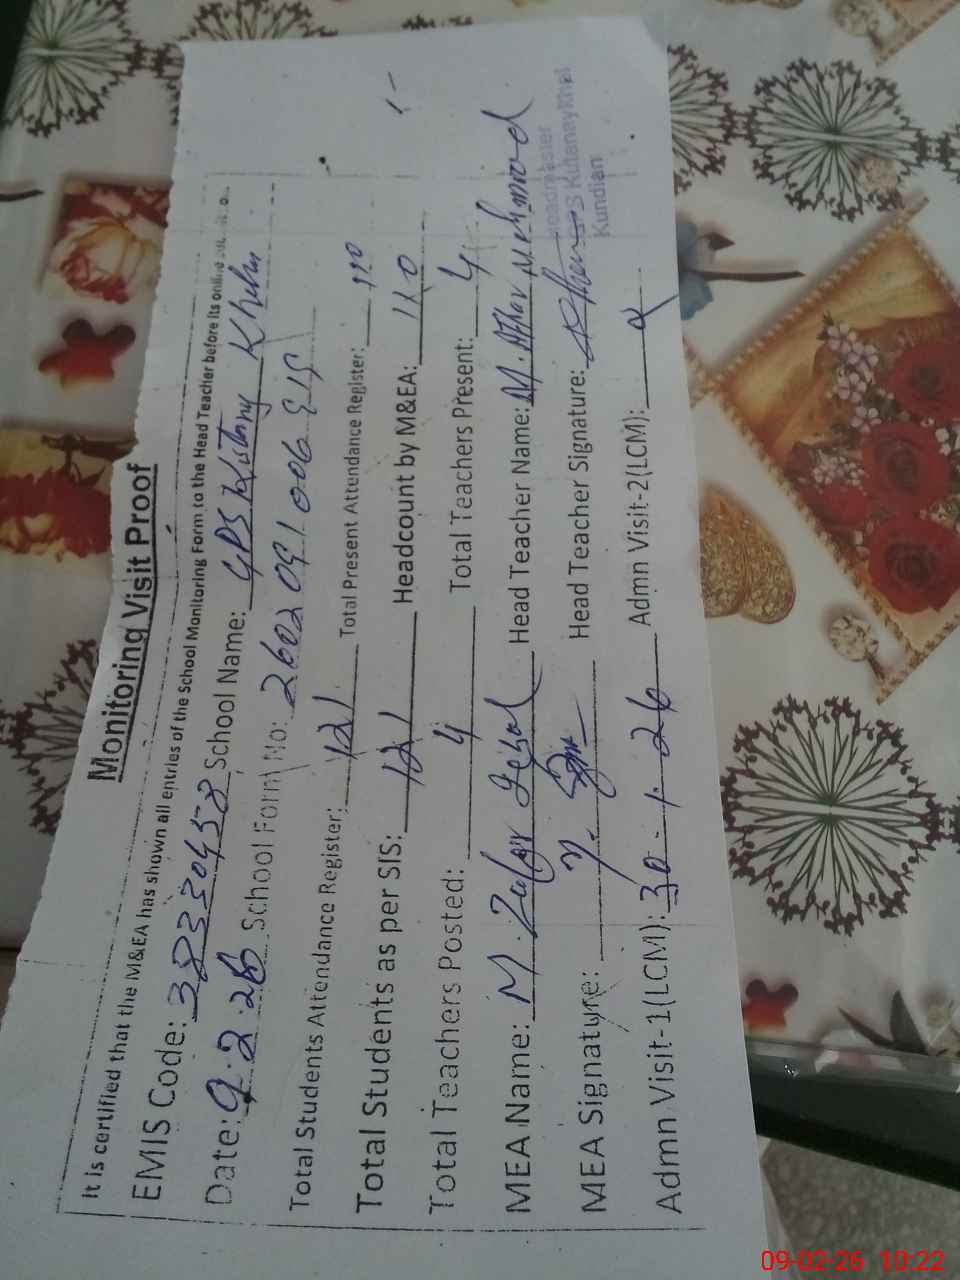 Monitoring Visit Proof
It is certified that the M&EA has shown all entries of the School Monitoring Form to the Head Teacher before its online
EMIS Code: 38330458 School Name: GPS Kutany Khelu
Date: 9.2.26 School Form No: 2602091006
Total Students Attendance Register: 121 Total Present Attendance Register: 110
Total Students as per SIS: 121 Headcount by M&EA: 110
Total Teachers Posted: 4 Total Teachers Present: 4
MEA Name: M. Zafar Iqbal Head Teacher Name: M. Athar Mehmood
MEA Signature: Head Teacher Signature:
Headmaster
GPS Kutanaykhal
Kundian
Admn Visit-1(LCM): 30-1-26 Admn Visit-2(LCM):
09-02-26 10:22